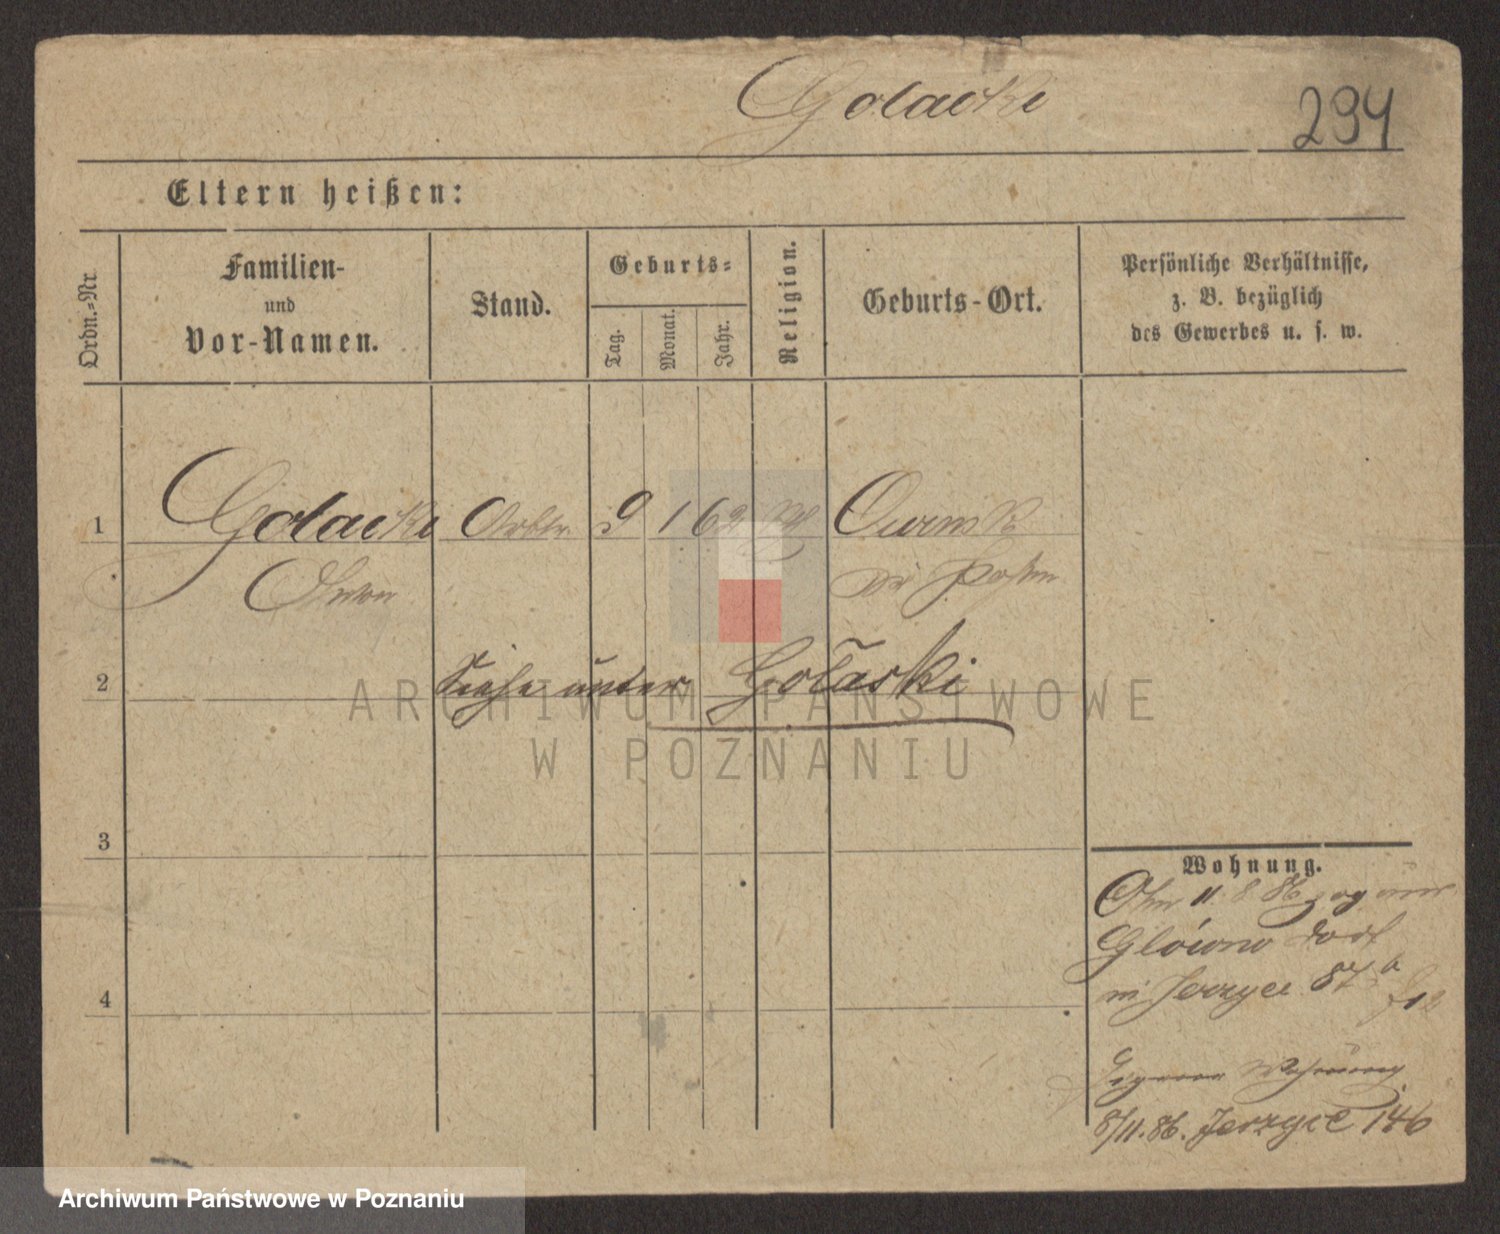 Golacki
294
Eltern heißen:
Ordn.-Nr
Familien-
und
Vor-Namen.
Stand.
Geburts-
Tag.
Monat.
Jahr.
Religion.
Geburts-Ort.
Persönliche Verhältnisse,
z. B. bezüglich
des Gewerbes u. s. w.
1
Golacki Arbtr. 9 1 62
Posen
2
Siehe unter Golaski
3
4
Wohnung.
Am 11. 8. 86 zog
Glowno Dorf
n Jerzyce 87
Eigene Wohnung
8/11. 86. Jerzyce 146
ARCHIWUM PAŃSTWOWE
W POZNANIU
Archiwum Państwowe w Poznaniu